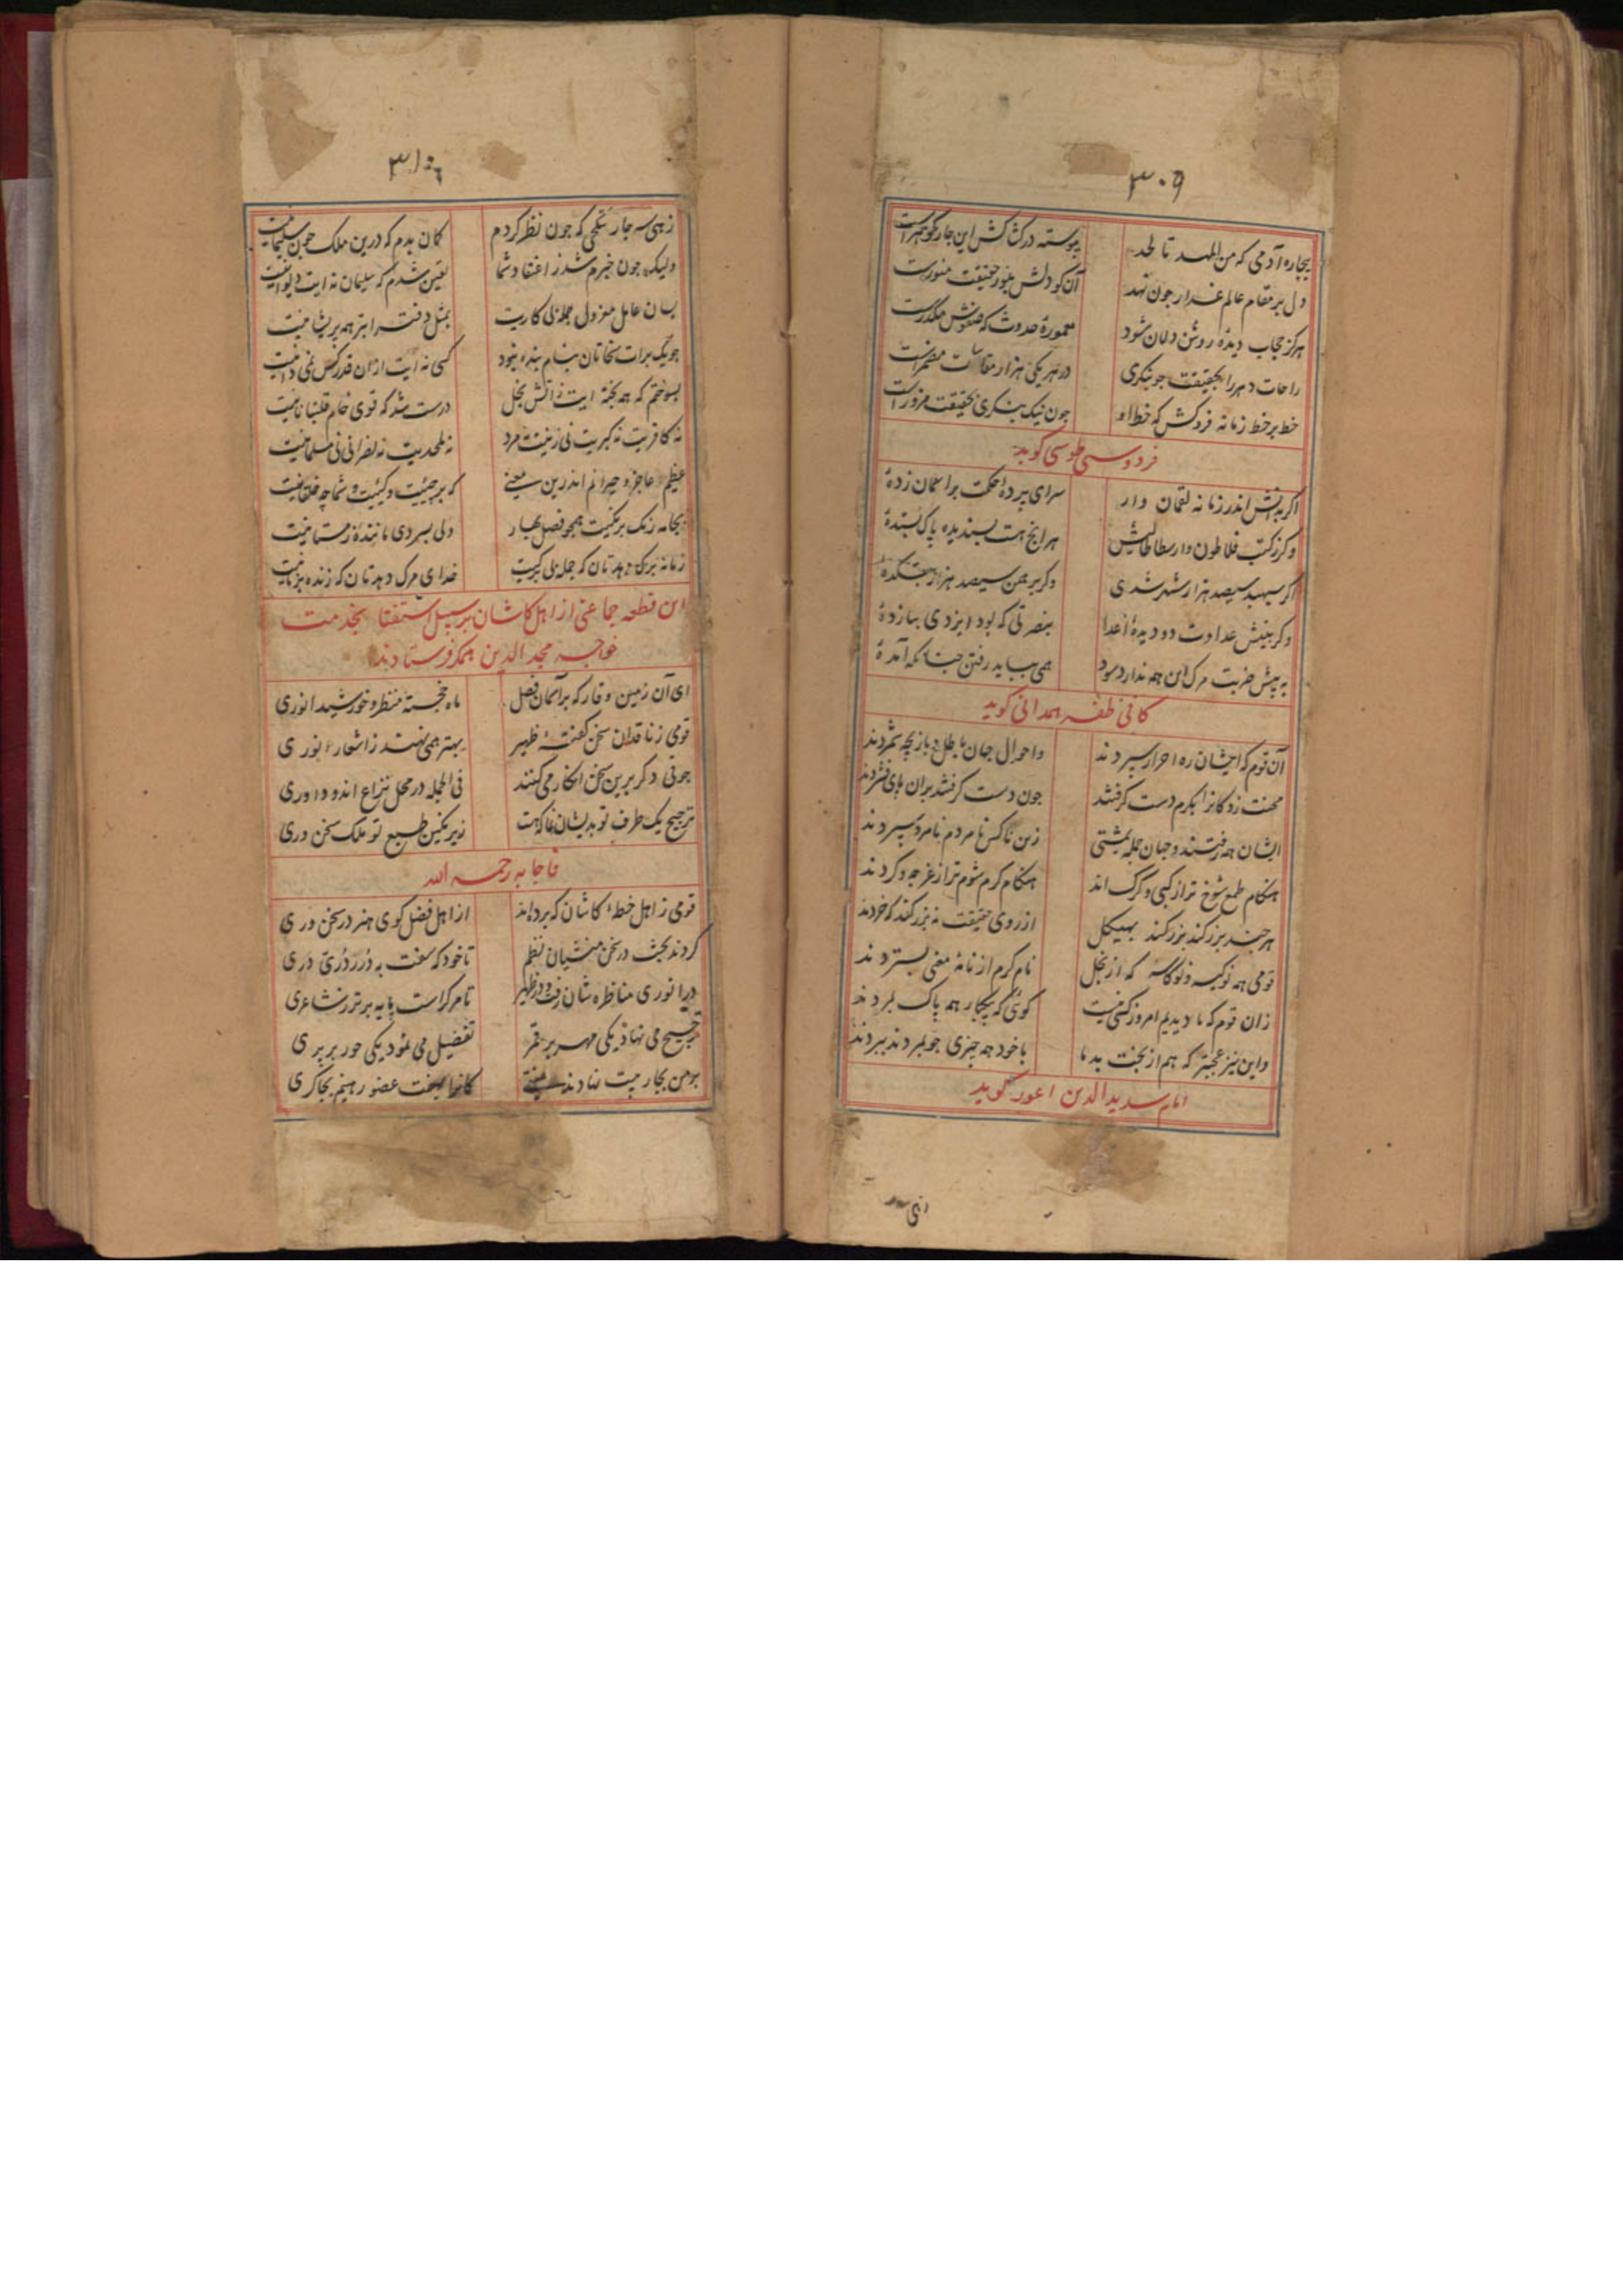 ۳۰۹
بیچاره آدمی که من المهد تا لحد پیوسته در کشاکش این چار گوهر است
دل بر مقام عالم غدار چون نهد آن کو دلش بنور حقیقت منورست
هرکز حجاب دیده روشن دلان نشود معموره حدوث که صفوش مکدرست
راحات دهر را بحقیقت چو بنکری در هر یکی هزار مضمرست
خط بر خط زمانه فروکش که خط او چون نیک بنکری بحقیقت مزورست
فردوسی طوسی کوید
اکر بدانش اندر زمانه لقمان وار سرای پرده حکمت بر آسمان زدهٔ
وکر ز کتب فلاطون و ارسطاطالیس هر انچ هست پسندیده پاک بستدهٔ
اکر سپهبد سیصد هزار شهر شدی وکر برهمن سیصد هزار بتکدهٔ
وکر بنیش عداوت دو دیدهٔ اعدا بنصرتی که بود ایزدی بیازدهٔ
به پیش ضربت مرک این همه ندارد سود همی بباید رفتن چنانکه آمدهٔ
کافی ظفر همدانی کوید
آن قوم که ایشان ره احرار سپردند واحوال جهان باطل و بازیچه شمردند
محنت زدکانرا بکرم دست کرفتند چون دست کرفتند بران پای فشردند
ایشان همه رفتند و جهان جمله بمشتی زین ناکس نامردم نامرد سپردند
هنکام طمع شوخ تر از کبی و کرک اند هنکام کرم شوم تر از غرچه و کردند
هر چند بزرکند بزرکند بهیکل از روی حقیقت نه بزرکند که خردند
قومی همه نوکیسه و نوکاسه که از بخل نام کرم از نامهٔ معنی بستردند
زان قوم که ما دیدیم امروز کسی نیست کوئی که بیکبار همه پاک بمردند
واین نیز عجبتر که هم از بخت بد ما با خود همه چیزی چو بمردند ببردند
امام سدیدالدین اعور کوید
۳۱۰
زهی سه چار که چون نظر کردم کمان بدم که درین ملک چون سلیمانیت
ولیک چون خبرم شد ز اعتقاد شما یقین شدم که سلیمان نه ایت دیوانیت
بسان عامل معزول جمله بی کاریت بمثل دفتر ابتر همه پریشانیت
چو یک برات سخاتان بنام بنده نبود کسی نه ایت ازان قدر کس نمی دانیت
بسوختم که همه پخته ایت ز آتش بخل درست شد که قوی خام قلتبانانیت
نه کافریت نه کبریت نی زنیت نه مرد نه ملحدیت نه نصرانی نی مسلمانیت
عظیم عاجز و حیرانم اندرین معنی که بر چئیت و کئیت و شما چه خلقانیت
بجامه رنک برنکیت همچو فصل بهار ولی بسردی مانندهٔ زمستانیت
خدای مرک دهدتان که زنده
این قطعه جماعتی از اهل کاشان بر سبیل استفتا بخدمت
خواجه مجد الدین همکر فرستادند
ای آن زمین وقار که بر آسمان فضل ماه خجسته منظر و خورشید انوری
قومی ز ناقدان سخن کفتهٔ ظهیر بهتر همی نهند ز اشعار انوری
جوقی دکر برین سخن انکار می کنند فی الجمله در محل نزاع اند و داوری
ترجیح یک طرف تو بدیشان نما که هست زیر نکین طبع تو ملک سخن وری
فاجابه رحمه الله
قومی ز اهل خطهٔ کاشان که برده اند از اهل فضل کوی هنر در سخن وری
کردند بحث در سخن منشیان نظم تا خود که سفت به درر درّی دری
در انوری مناظره شان رفت و در ظهیر تا مر کراست پایه برتر ز شاعری
ترجیح می نهاد یکی مهر بر قمر تفضیل می نمود یکی حور بر پری